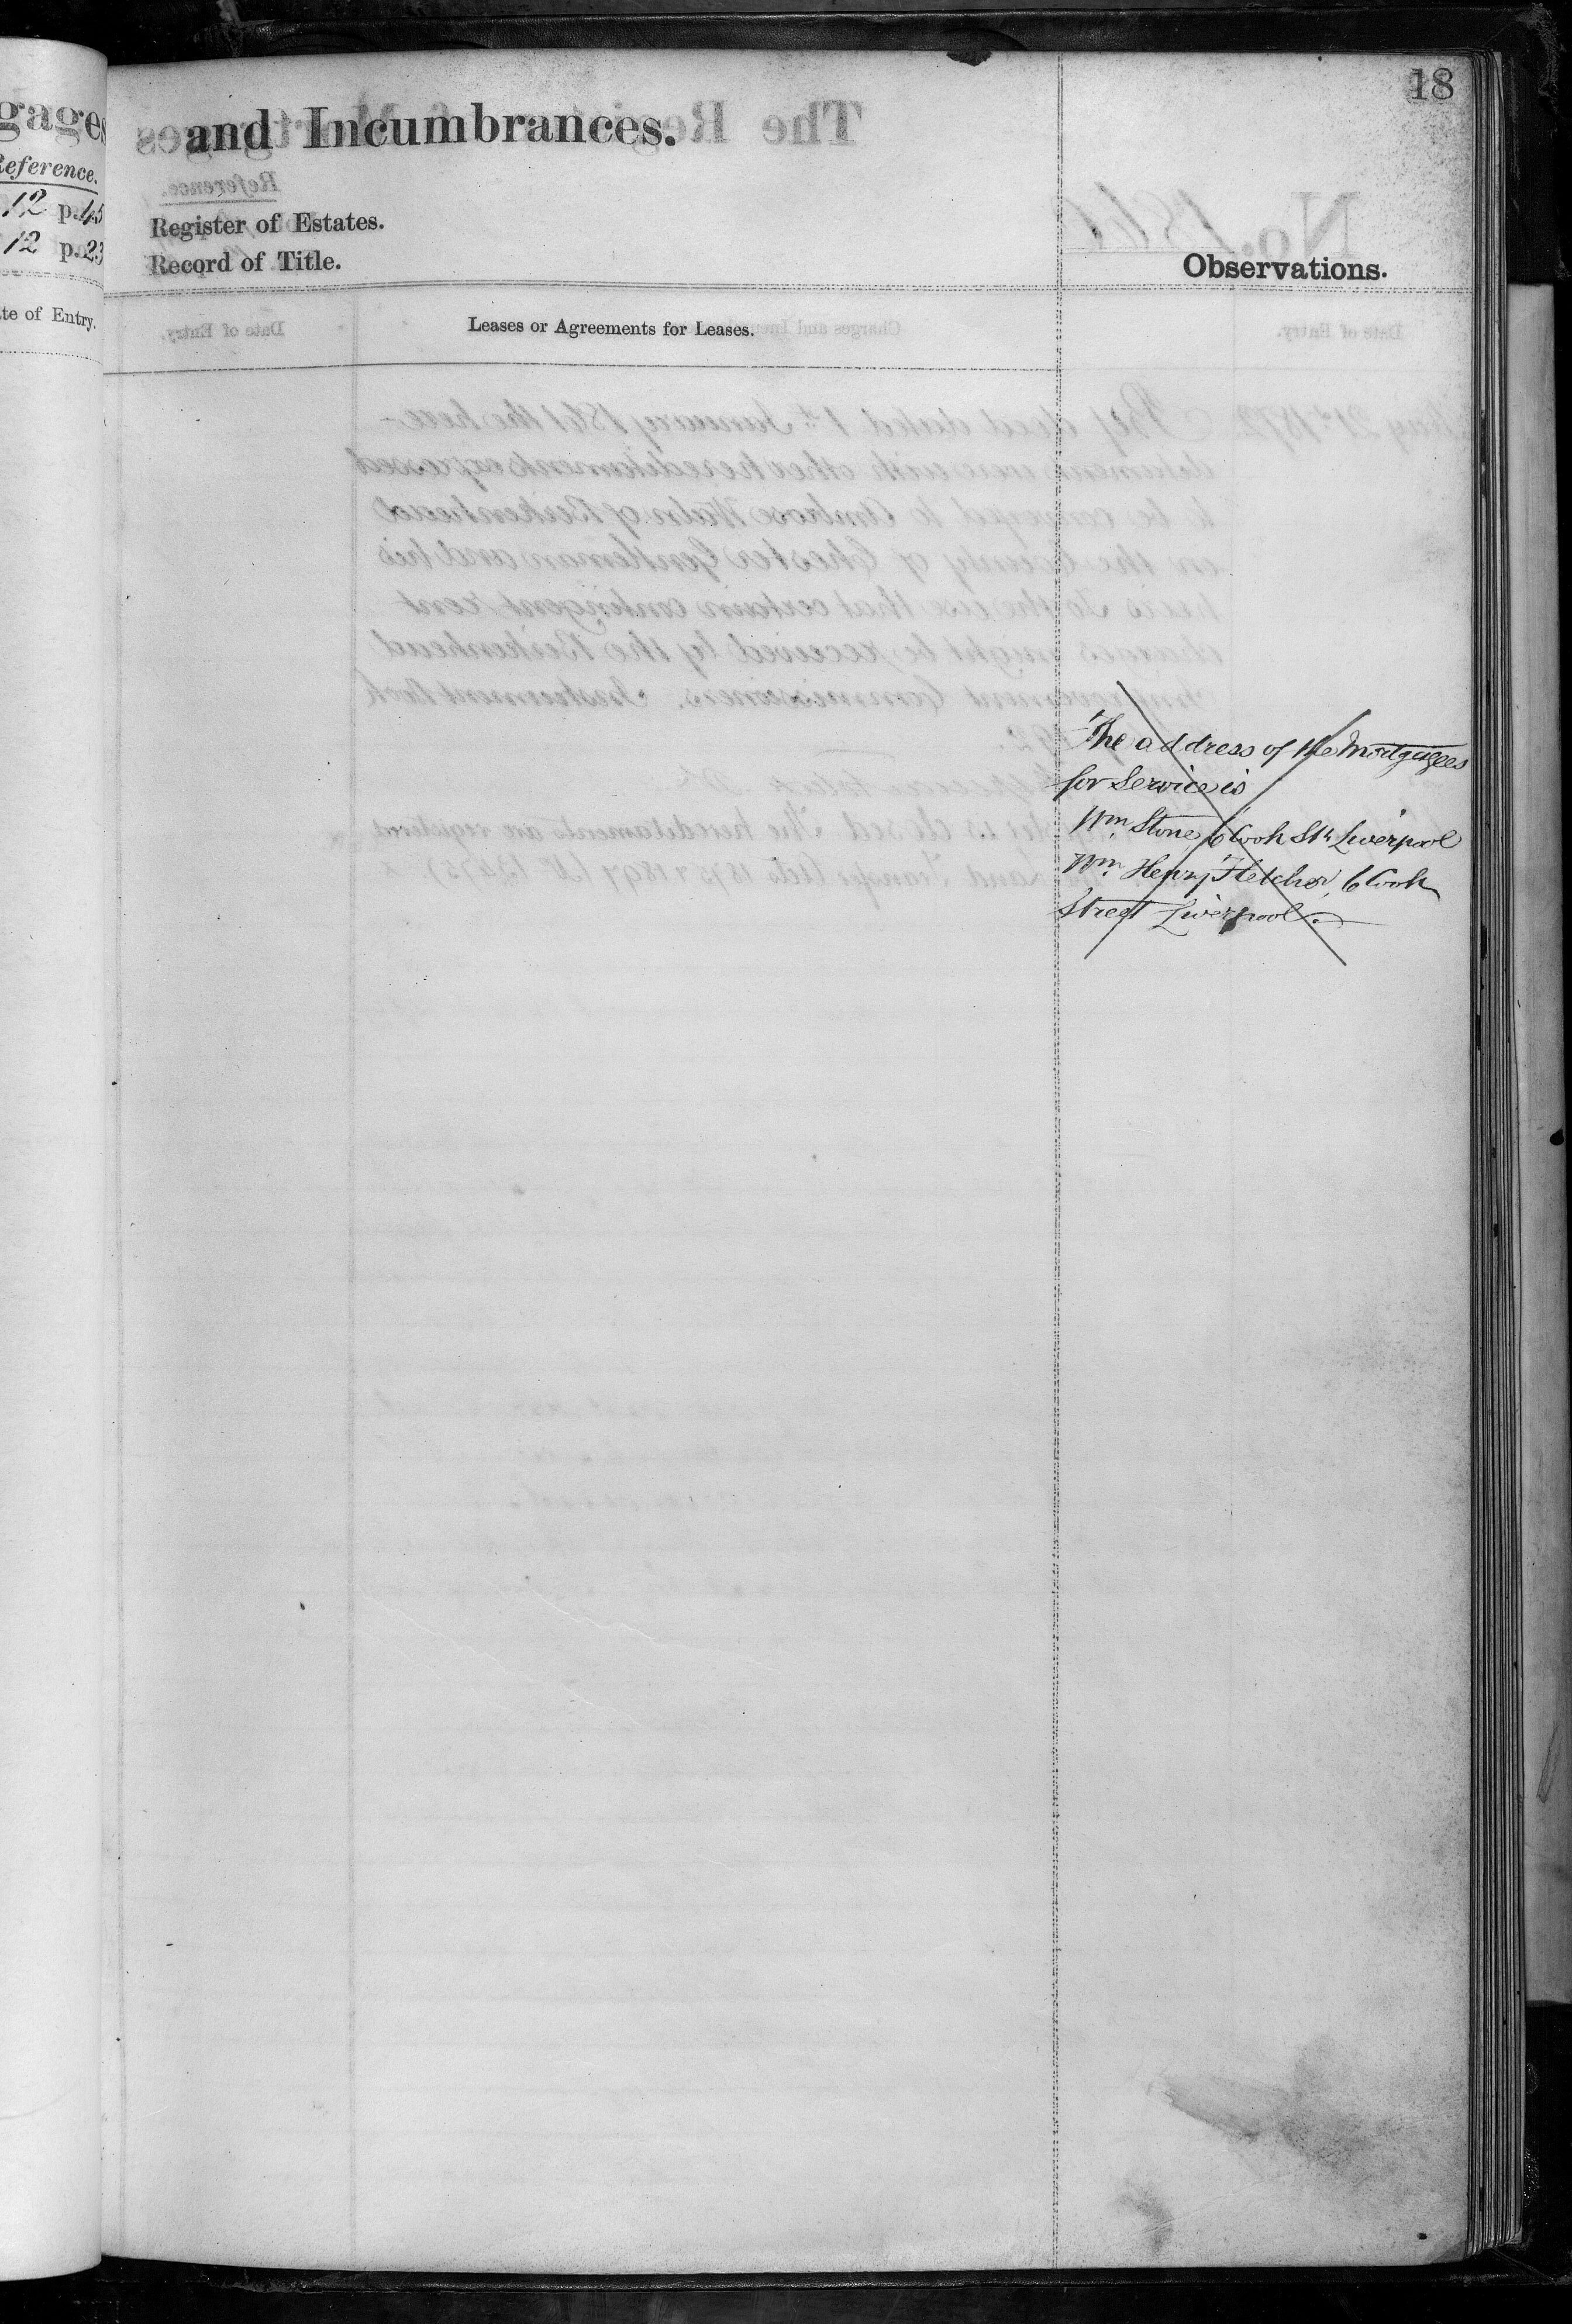 18
gages
and Incumbrances.
Reference.
12 p. 45
12 p. 23
Register of Estates.
Record of Title.
Observations.
te of Entry.
Leases or Agreements for Leases.
The address of the Mortgagees
for Service is
Wm Stone, 6 Cook St. Liverpool
Wm. Henry Fletcher, 6 Cook
Street Liverpool.